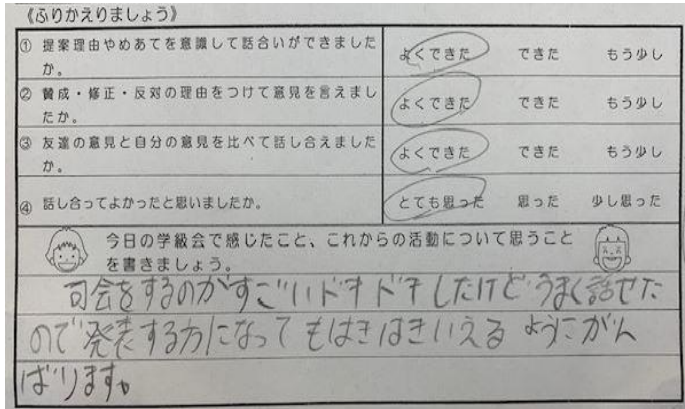 《ふりかえりましょう》
① 提案理由やめあてを意識して話合いができました
か。
よくできた できた もう少し
② 賛成・修正・反対の理由をつけて意見を言えまし
たか。
よくできた できた もう少し
③ 友達の意見と自分の意見を比べて話し合えました
か。
よくできた できた もう少し
④ 話し合ってよかったと思いましたか。
とても思った 思った 少し思った
今日の学級会で感じたこと、これからの活動について思うこと
を書きましょう。
司会をするのがすごいドキドキしたけどうまく話せた
ので発表する方になってもはきはきいえるようにがん
ばります。